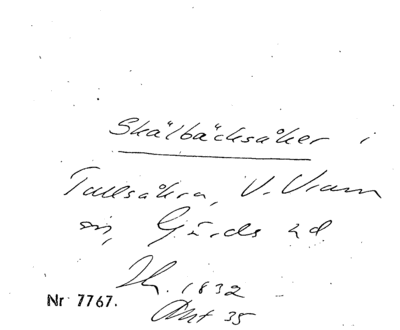 Skälbäcksåker i
Tullsåkra, V. Vram
sn, Gärds hd
Th. 1832
Ant 35
Nr 7767.